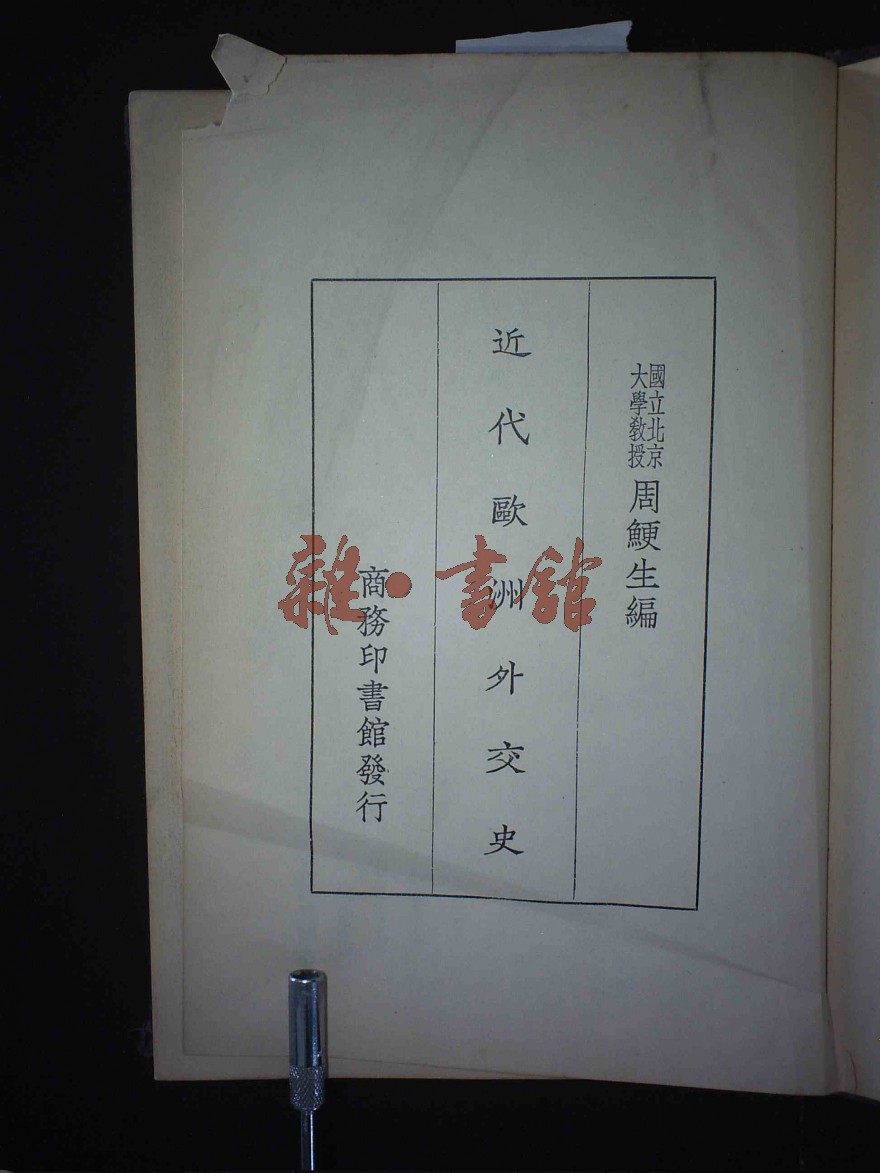 國立北京
大學教授
周鯁生編
近代歐洲外交史
商務印書館發行
雜·書館